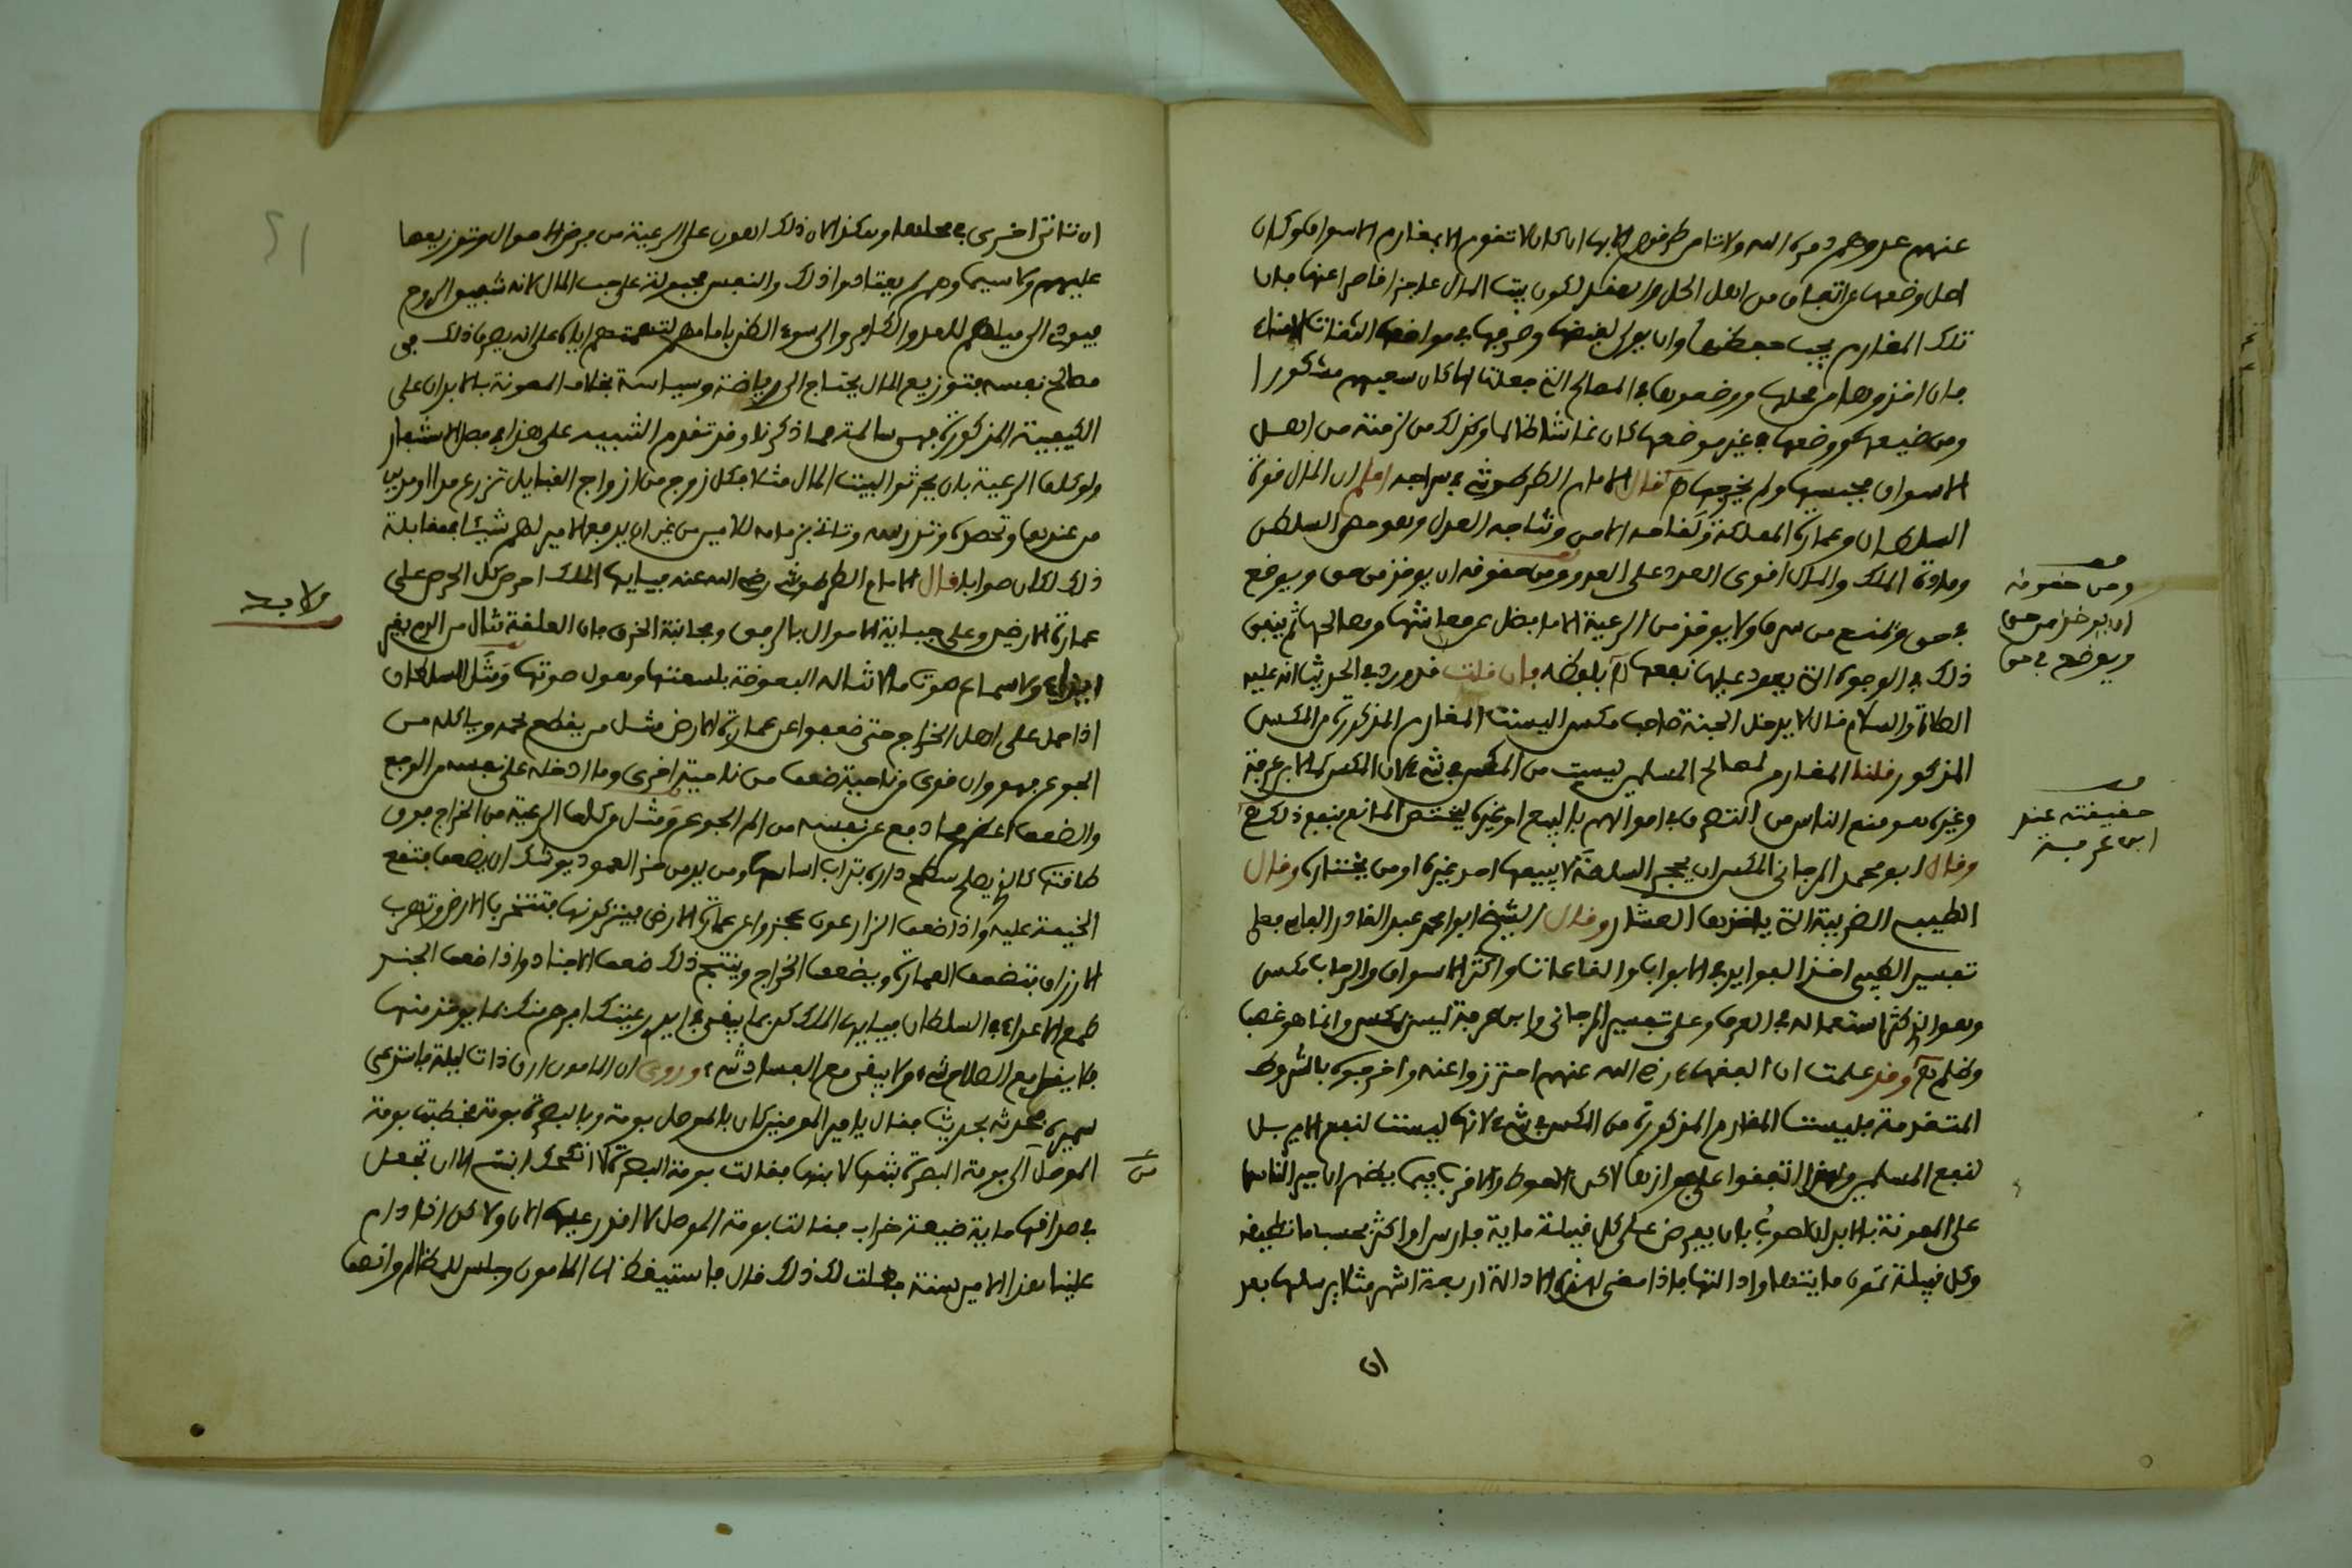 عنهم عدوهم دمره الله ولا تامن طرقهم الا بها ان كان لا تقوم الا بمغارم الاسواق وكان
اصل وضعها عن اتفاق من اهل الحل والعقد لكون بيت المال عاجزا قاصرا عنها فان
تلك المغارم يجب حفظها وان يولى لقبضها وصرفها في مواضعها الثقات الامناء
فان اخذوها من محلها ووضعوها في المصالح التي جعلت لها كان سعيهم مشكورا
ومن ضيعها ووضعها في غير موضعها كان غاشا ظالما وكذلك من لزمته من اهل
الاسواق فحبسها ولم يخرجها قال الامام الطرطوشي في سراجه اعلم ان المال قوة
السلطان وعمارة المملكة ولقاحه الامن ونتاجه العدل وهو حصن السلطن
ومادة الملك والمال اقوى العدد على العدو ومن حقوقه ان يوخذ من حق ويوضع
في حق ويمنع من سرف ولا يوخذ من الرعية الا ما فضل عن معاشها ومصالحها ثم ينفق
ذلك في الوجوه التي يعود عليها نفعها بلفظه فان قلت قد ورد في الحديث انه عليه
الصلاة والسلام قال لا يدخل الجنة صاحب مكس اليست المغارم المذكورة من المكس
المذكور قلنا المغارم لمصالح المسلمين ليست من المكس في شيء لان المكس كما لابن عرفة
وغيره هو منع الناس من التصرف في اموالهم بالبيع او غيره ليختص المانع بنفع ذلك
وقال ابو محمد المرجاني المكس ان يحجر السلعة لا يبيعها احد غيره او من يختاره وقال
الطيبي الضريبة التي ياخذها العشار وقال الشيخ ابو محمد عبد القادر الفاسي فعلى
تفسير الطيبي اخذ الفوايد في الابواب والقاعات واكثر الاسواق والرحاب مكس
وهو الذي كثر استعماله في العرف وعلى تفسير المرجاني وابن عرفة ليس بمكس وانما هو غصب
وظلم وقد علمت ان الفقهاء رضي الله عنهم احترزوا عنه واخرجوه بالشروط
المتقدمة فليست المغارم المذكورة من المكس في شيء لانها ليست لنفع الامير بل
لنفع المسلمين ولهذا اتفقوا على جوازها لاكن الاحوط والاقرب فيما يظهر ان يجبر الناس
على المعونة بالابدان لاصوب بان يفرض على كل قبيلة ماية فارس او اكثر بحسب ما تطيقه
وكل قبيلة تمون مايتها وادالتها فاذا مضى لهذه الادالة اربعة اشهر مثلا يرسلها بعد
ان
ومن حقوقه
ان يوخذ من حق
ويوضع في حق
حقيقته عند
ابن عرفة
ان تاتي اخرى في محلها وهكذا لان ذلك اهون على الرعية من فرض الاموال وتوزيعها
عليهم ولا سيما وهم لم يعتادوا ذلك والنفس مجبولة على حب المال لانه شقيق الروح
فيودي الى ميلهم للعدو الكافر والى سوء الظن بامامهم لتهمتهم اياه على انه يصرف ذلك في
مصالح نفسه فتوزيع المال يحتاج الى رياضة وسياسة بخلاف المعونة بالابدان على
الكيفية المذكورة فهي سالمة مما ذكرنا وقد تقدم التنبيه على هذا في فصل الاستنفار
ولو كلف الرعية بان يحرثوا لبيت المال مثلا فكل زوج من ازواج القبايل تزرع مدا او مدين
من عندها وتحصده وتدرسه وتاتي بزمامه للامير من غير ان يدفع الامير لهم شيئا بمقابلة
ذلك لكان صوابا قال الامام الطرطوشي رضي الله عنه فيا ايها الملك احرص كل الحرص على
عمارة الارض وعلى جباية الاموال بالرفق ومجانبة الخرق فان العلقة تنال من الدم بغير
اذاء ولا سماع صوت ما لا تناله البعوضة بلسعتها وهول صوتها ومثل السلطان
اذا حمل على اهل الخراج حتى ضعفوا عن عمارة الارض مثل من يقطع لحمه وياكله من
الجوع فهو وان قوي من ناحية ضعف من ناحية اخرى وما ادخله على نفسه من الوجع
والضعف اعظم مما دفع عن نفسه من الم الجوع ومثل من كلف الرعية من الخراج فوق
طاقتها كالذي يصلح سطح داره بتراب اساسها ومن يدمن حز العمود يوشك ان يضعف فتقع
الخيمة عليه واذا ضعف الزارعون عجزوا عن عمارة الارض فيتركونها فتخرب الارض وتهرب
الزراع فتضعف العمارة ويضعف الخراج وينتج ذلك ضعف الاجناد واذا ضعف الجند
طمع الاعداء في السلطان فيا ايها الملك كن بما يبقى في ايدي رعيتك افرح منك بما يوخذ منها
فلا يقل مع الصلاح شيء ولا يبقى مع الفساد شيء وروي ان المامون ارق ذات ليلة فاستدعى
سميره فحدثه بحديث فقال يا امير المومنين كان بالموصل بومة وبالبصرة بومة فخطبت بومة
الموصل الى بومة البصرة بنتها لابنها فقالت بومة البصرة لا انكحك ابنتي الا ان تجعل
في صداقها ماية ضيعة خراب فقالت بومة الموصل لا اقدر عليها الان ولاكن اذا دام
علينا هذا الامير سنة فعلت لك ذلك قال فاستيقظ لها المامون وجلس للمظالم وانصف
ولا بد